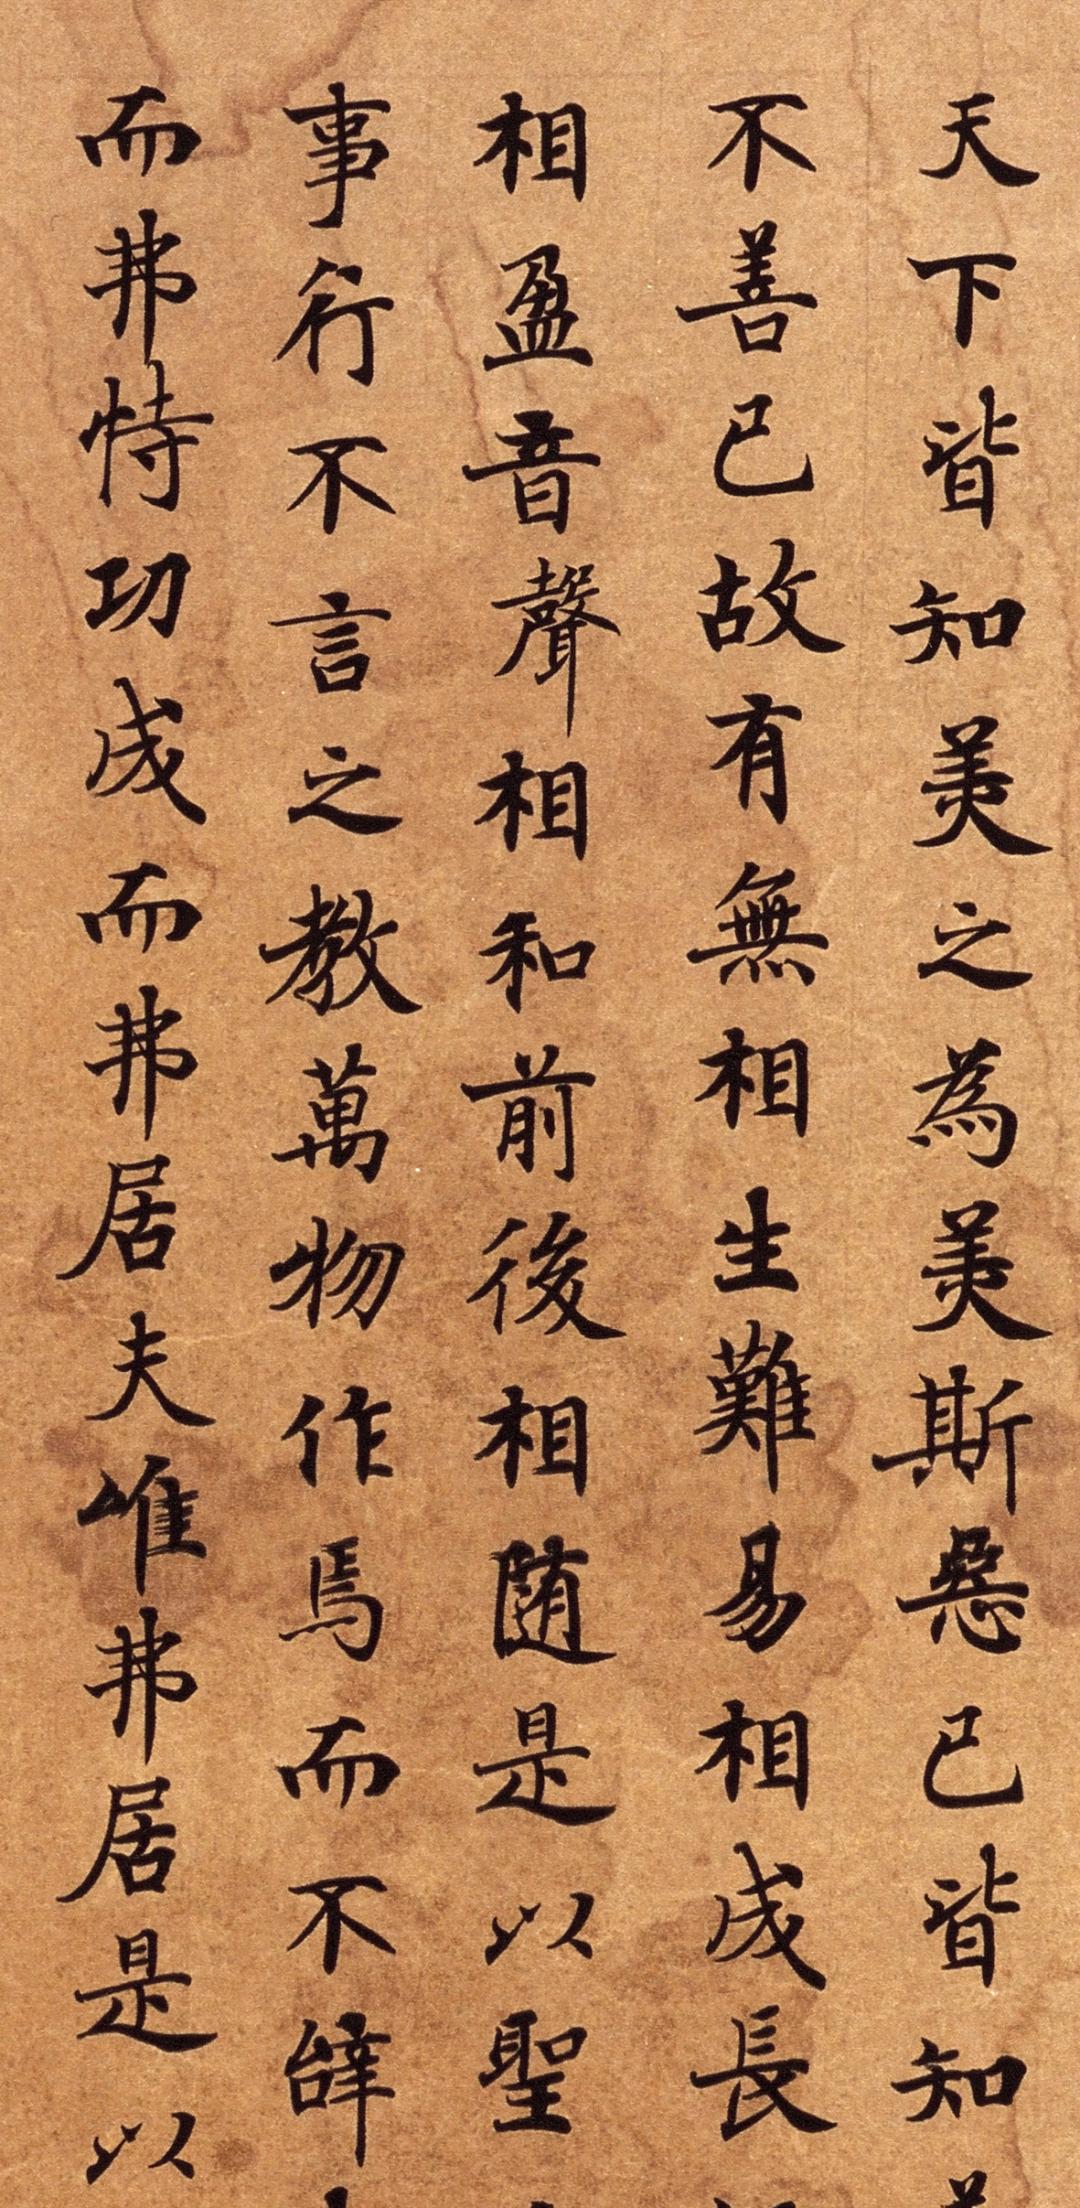 天下皆知美之為美斯惡已皆知
不善已故有無相生難易相成長
相盈音聲相和前後相随是以聖
事行不言之教萬物作焉而不辝
而弗恃功成而弗居夫唯弗居是以